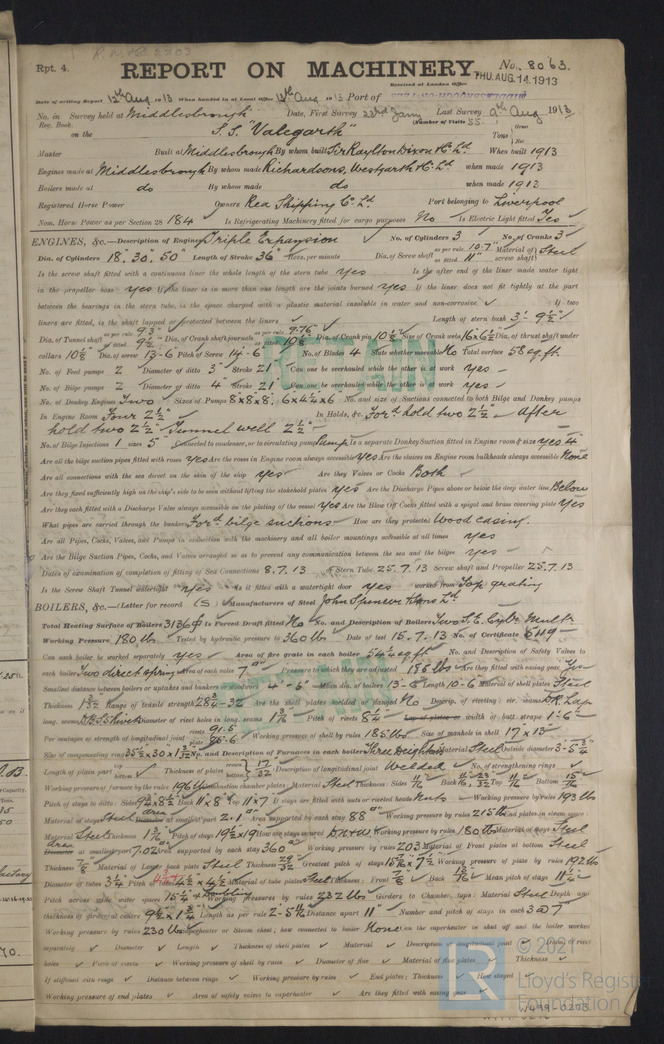 Rpt. 4.
REPORT ON MACHINERY.
No. 8063.
Received at London Office THU. AUG. 14 1913
Date of writing Report 12th Aug 1913 When handed in at Local Office Aug 1913 Port of MIDDLESBROUGH-ON-TEES
No. in Survey held at Middlesbrough Date, First Survey 23rd Jan Last Survey 9th Aug 1913
Reg. Book. (Number of Visits 55
on the S.S. "Valegarth" Tons Gross Net
Master Built at Middlesbrough By whom built Sir Raylton Dixon & Co. Ltd. When built 1913
Engines made at Middlesbrough By whom made Richardsons, Westgarth & Co. Ltd. when made 1913
Boilers made at do By whom made do when made 1913
Registered Horse Power Owners Rea Shipping Co. Ld Port belonging to Liverpool
Nom. Horse Power as per Section 28 184 Is Refrigerating Machinery fitted for cargo purposes No Is Electric Light fitted Yes
ENGINES, &c.—Description of Engines Triple Expansion No. of Cylinders 3 No. of Cranks 3
Dia. of Cylinders 18. 30. 50" Length of Stroke 36" Revs. per minute Dia. of Screw shaft as per rule 10.7" as fitted 11" Material of screw shaft Steel
Is the screw shaft fitted with a continuous liner the whole length of the stern tube yes Is the after end of the liner made water tight
in the propeller boss yes If the liner is in more than one length are the joints burned yes If the liner does not fit tightly at the part
between the bearings in the stern tube, is the space charged with a plastic material insoluble in water and non-corrosive ✓ If two
liners are fitted, is the shaft lapped or protected between the liners ✓ Length of stern bush 3'- 9½"
Dia. of Tunnel shaft as per rule 9.3" as fitted 9½" Dia. of Crank shaft journals as per rule 9.76" as fitted 10½" Dia. of Crank pin 10½" Size of Crank webs 16x6½ Dia. of thrust shaft under
collars 10½" Dia. of screw 13-6 Pitch of Screw 14-6 No. of Blades 4 State whether moveable No Total surface 58 sq. ft.
No. of Feed pumps 2 Diameter of ditto 3" Stroke 21" Can one be overhauled while the other is at work yes
No. of Bilge pumps 2 Diameter of ditto 4" Stroke 21" Can one be overhauled while the other is at work yes
No. of Donkey Engines Two Sizes of Pumps 8x8x8, 6x4½x6 No. and size of Suctions connected to both Bilge and Donkey pumps
In Engine Room Four 2½" In Holds, &c. Ford hold two 2½" After
hold two 2½" Tunnel well 2½"
No. of Bilge Injections 1 sizes 5" Connected to condenser, or to circulating pump Pump Is a separate Donkey Suction fitted in Engine room & size yes 4
Are all the bilge suction pipes fitted with roses yes Are the roses in Engine room always accessible yes Are the sluices on Engine room bulkheads always accessible None
Are all connections with the sea direct on the skin of the ship yes Are they Valves or Cocks Both
Are they fixed sufficiently high on the ship's side to be seen without lifting the stokehold plates yes Are the Discharge Pipes above or below the deep water line Below
Are they each fitted with a Discharge Valve always accessible on the plating of the vessel yes Are the Blow Off Cocks fitted with a spigot and brass covering plate yes
What pipes are carried through the bunkers Ford bilge suctions How are they protected Wood casing.
Are all Pipes, Cocks, Valves, and Pumps in connection with the machinery and all boiler mountings accessible at all times yes
Are the Bilge Suction Pipes, Cocks, and Valves arranged so as to prevent any communication between the sea and the bilges yes
Dates of examination of completion of fitting of Sea Connections 8.7.13 of Stern Tube 25.7.13 Screw shaft and Propeller 25.7.13
Is the Screw Shaft Tunnel watertight yes Is it fitted with a watertight door yes worked from Top grating
BOILERS, &c.—(Letter for record (S) Manufacturers of Steel John Spencer & Sons Ld
Total Heating Surface of Boilers 3136 Is Forced Draft fitted No No. and Description of Boilers Two S.E. Cylr. Mult.
Working Pressure 180 lbs Tested by hydraulic pressure to 360 lbs Date of test 15.7.13 No. of Certificate 5119
Can each boiler be worked separately yes Area of fire grate in each boiler 54½ sq ft No. and Description of Safety Valves to
each boiler Two direct spring Area of each valve 7" Pressure to which they are adjusted 185 lbs Are they fitted with easing gear Yes
Smallest distance between boilers or uptakes and bunkers or woodwork 4'-6" Mean dia. of boilers 13-6 Length 10-6" Material of shell plates Steel
Thickness 1 3/32 Range of tensile strength 28¾-32 Are the shell plates welded or flanged No Descrip. of riveting: cir. seams D.R. Lap
long. seams Diameter of rivet holes in long. seams 1 3/16 Pitch of rivets 8¼ Lap of plates or width of butt straps 1-6
Per centages of strength of longitudinal joint rivets 91.5 plate 85.6 Working pressure of shell by rules 185 lbs Size of manhole in shell 17"x13"
Size of compensating ring 35½x30x1 3/32 No. and Description of Furnaces in each boiler Three Deighton Material Steel Outside diameter 3-5¾
Length of plain part top bottom ✓ Thickness of plates crown bottom 17/32 Description of longitudinal joint Welded No. of strengthening rings ✓
Working pressure of furnace by the rules 196 lbs Combustion chamber plates: Material Steel Thickness: Sides 11/16 Back Top 11/16 Bottom 15/16
Pitch of stays to ditto: Sides 9¼x8½ Back 11"x8" Top 11x7 If stays are fitted with nuts or riveted heads Nuts Working pressure by rules 193 lbs
Material of stays Steel area at smallest part 2.1 Area supported by each stay 88 Working pressure by rules 215 lbs End plates in steam space:
Material Steel Thickness 1 3/16 Pitch of stays 19½x19 How are stays secured DN&W Working pressure by rules 180 lbs Material of stays Steel
area at smallest part 7.02 Area supported by each stay 360 Working pressure by rules 203 Material of Front plates at bottom Steel
Thickness 7/8 Material of Lower back plate Steel Thickness 29/32 Greatest pitch of stays 15 7/16 x 7½ Working pressure of plate by rules 192 lbs
Diameter of tubes 3¼ Pitch of tubes 4½x4½ Material of tube plates Steel Thickness: Front 7/8 Back 13/16 Mean pitch of stays 11¼
Pitch across wide water spaces 15¼ x Doubling Working pressures by rules 232 lbs Girders to Chamber tops: Material Steel Depth and
thickness of girder at centre 9½x1¾ Length as per rule 2-5 11/16 Distance apart 11" Number and pitch of stays in each 3 @ 7"
Working pressure by rules 230 lbs Superheater or Steam chest; how connected to boiler None Can the superheater be shut off and the boiler worked
separately ✓ Diameter ✓ Length ✓ Thickness of shell plates ✓ Material ✓ Description of longitudinal joint ✓ Diam. of rivet
holes ✓ Pitch of rivets ✓ Working pressure of shell by rules ✓ Diameter of flue ✓ Material of flue plates ✓ Thickness ✓
If stiffened with rings ✓ Distance between rings ✓ Working pressure by rules ✓ End plates: Thickness ✓ How stayed ✓
Working pressure of end plates ✓ Area of safety valves to superheater ✓ Are they fitted with easing gear ✓
RETAIN
RETAIN
© 2021
Lloyd's Register
Foundation
W499-0273